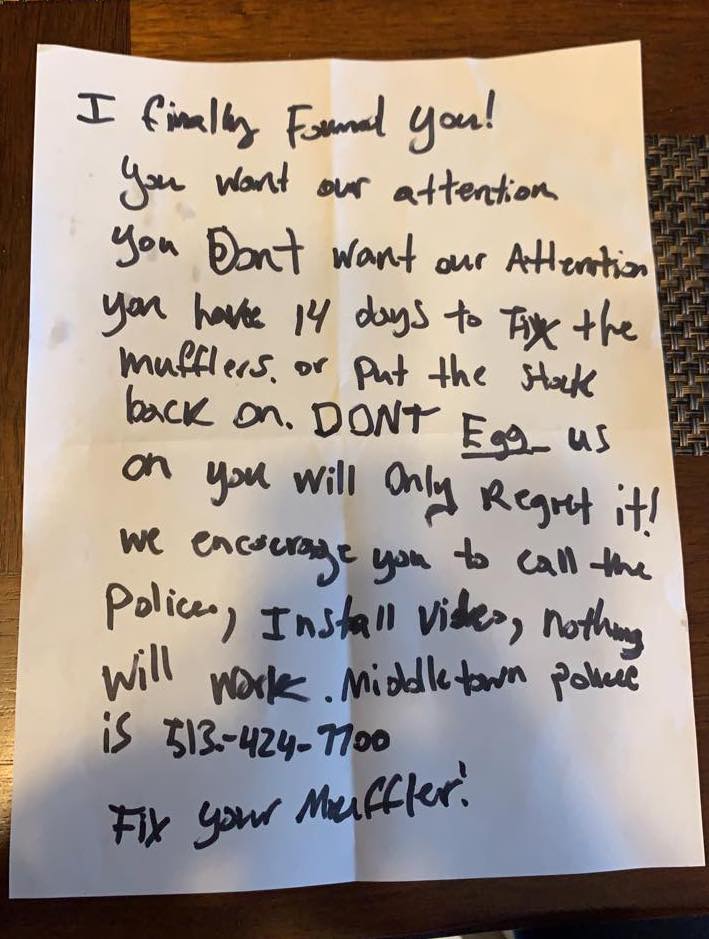 I finally Found you!
you want our attention
you Dont want our Attention
you have 14 days to Fix the
mufflers. or put the stock
back on. DONT Egg us
on you will Only Regret it!
we encourage you to call the
Police, Install video, nothing
will work. Middletown police
is 513-424-7700
Fix your Muffler!